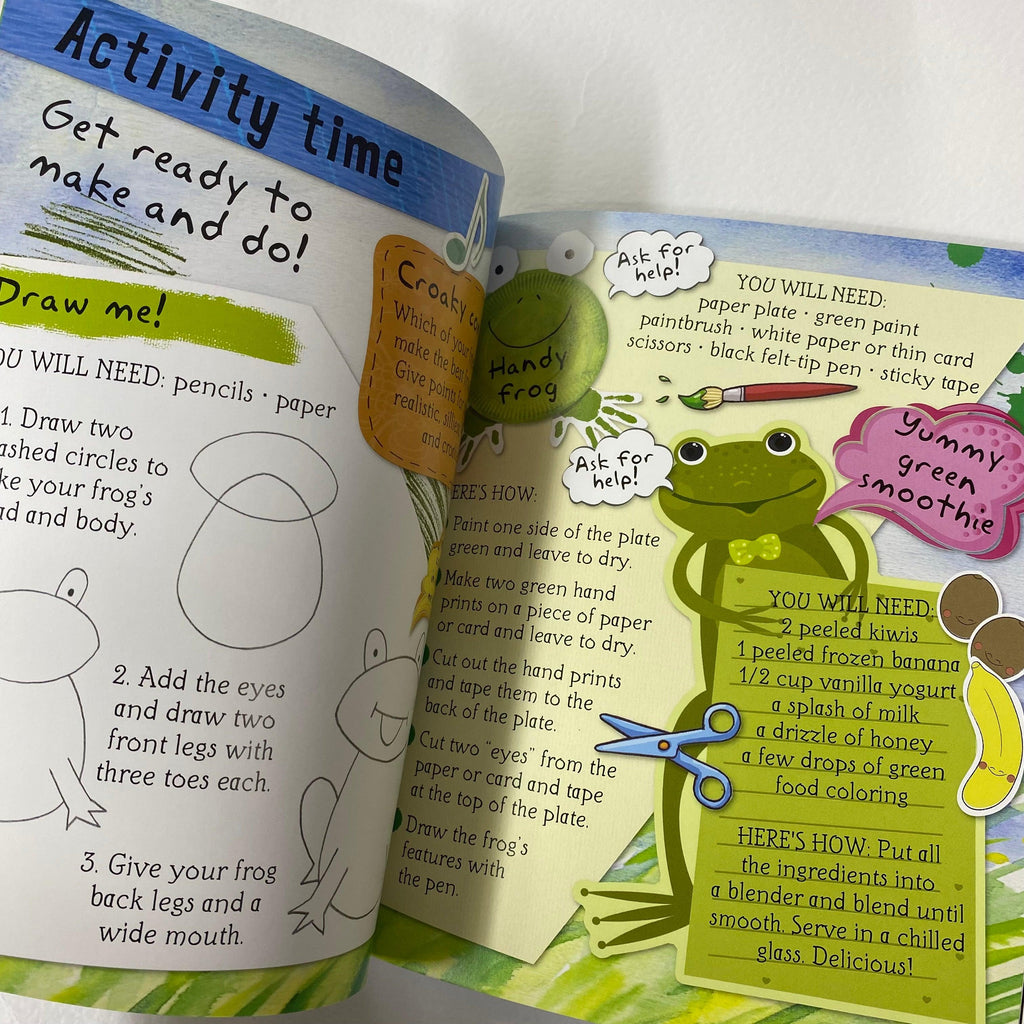 Activity time
Get ready to
make and do!
Draw me!
YOU WILL NEED: pencils • paper
1. Draw two
to
your frog's
and body.
2. Add the eyes
and draw two
front legs with
three toes each.
3. Give your frog
back legs and a
wide mouth.
Croaky
Which of your
make the
Give points
realistic,
and
Handy
frog
Ask for
help!
YOU WILL NEED:
paper plate • green paint
paintbrush • white paper or thin card
scissors • black felt-tip pen • sticky tape
Ask for
help!
HOW:
Paint one side of the plate
green and leave to dry.
Make two green hand
prints on a piece of paper
or card and leave to dry.
Cut out the hand prints
and tape them to the
back of the plate.
Cut two "eyes" from the
paper or card and tape
at the top of the plate.
Draw the frog's
features with
the pen.
Yummy
green
smoothie
YOU WILL NEED:
2 peeled kiwis
1 peeled frozen banana
1/2 cup vanilla yogurt
a splash of milk
a drizzle of honey
a few drops of green
food coloring
HERE'S HOW: Put all
the ingredients into
a blender and blend until
smooth. Serve in a chilled
glass. Delicious!